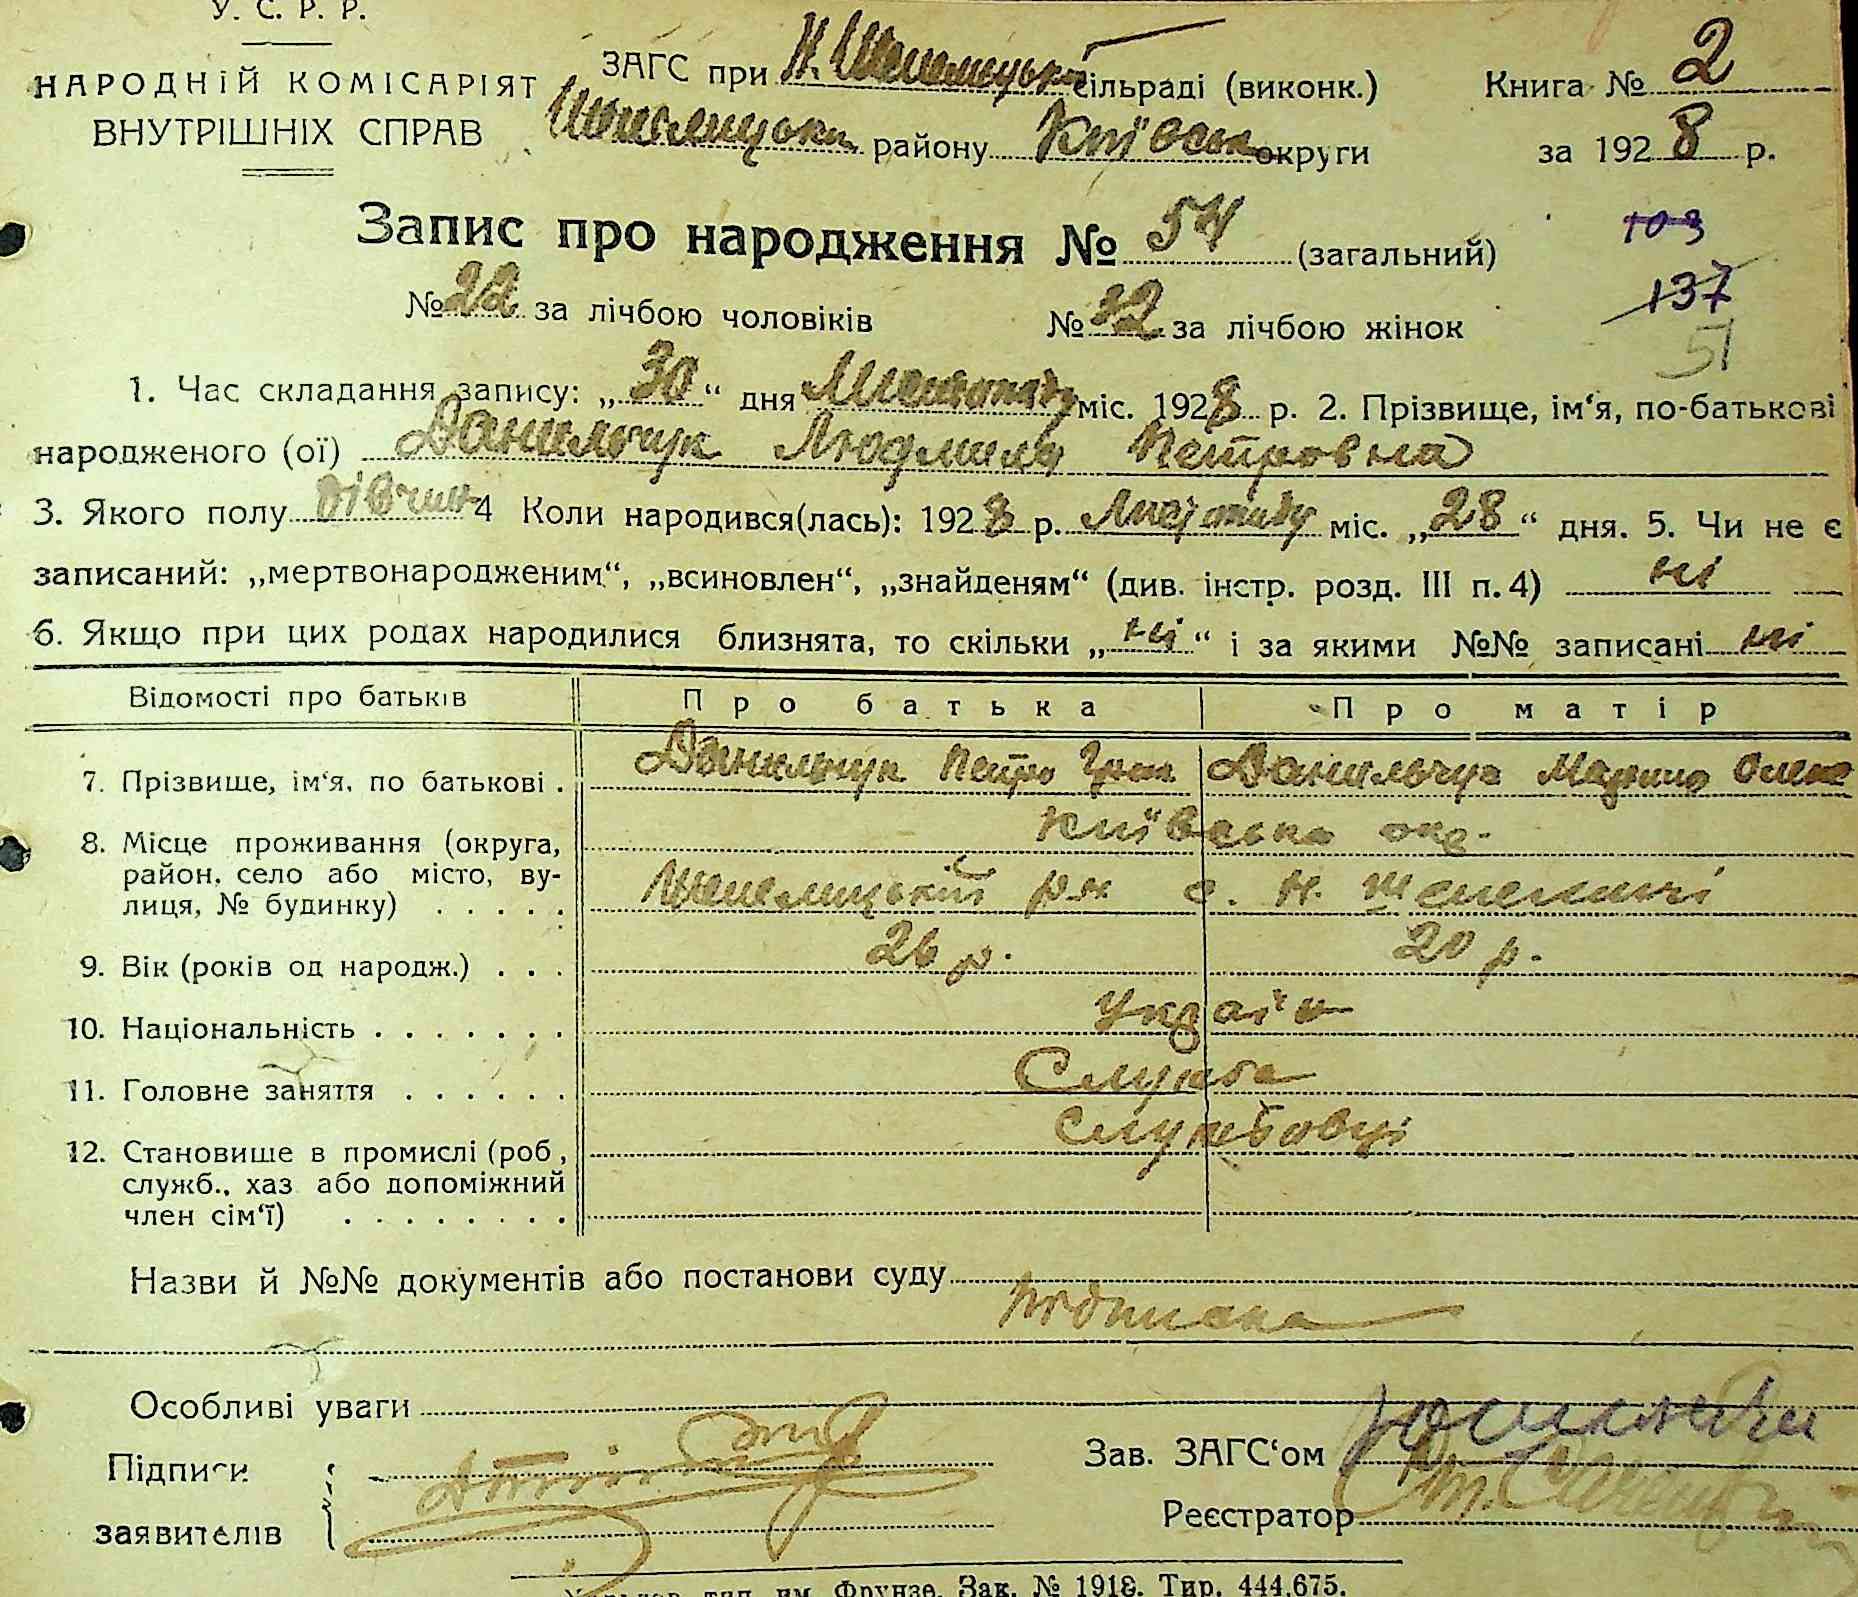 У. С. Р. Р.
НАРОДНІЙ КОМІСАРІЯТ
ВНУТРІШНІХ СПРАВ
ЗАГС при Н. Шепелицькій сільраді (виконк.)
Шепелицьки району Київськ округи
Книга № 2
за 1928 р.
Запис про народження № 54 (загальний)
103
137
51
№ 22 за лічбою чоловіків № 32 за лічбою жінок
1. Час складання запису: „30“ дня Листопаду міс. 1928 р. 2. Прізвище, ім‘я, по-батькові
народженого (ої) Данильчук Людмила Петровна
3. Якого полу дівчин 4 Коли народився(лась): 1928 р. Листопаду міс. „28“ дня. 5. Чи не є
записаний: „мертвонародженим“, „всиновлен“, „знайденям“ (див. інстр. розд. III п. 4) ні
6. Якщо при цих родах народилися близнята, то скільки „ні“ і за якими №№ записані ні
Відомості про батьків Про батька Про матір
7. Прізвище, ім‘я, по батькові . Данильчук Петро Данильчук Марина Олекс
8. Місце проживання (округа, Київська окр.
район, село або місто, ву-
лиця, № будинку) . . . . . Шепелицький р-н с. Н. Шепеличі
9. Вік (років од народж.) . . . 26 р. 20 р.
10. Національність . . . . . . . Україн
11. Головне заняття . . . . . . Служба
12. Становище в промислі (роб, Службовці
служб., хаз або допоміжний
член сім‘ї) . . . . . . . .
Назви й №№ документів або постанови суду
Підписка
Особливі уваги
Підписи
заявителів
Зав. ЗАГС‘ом
Реєстратор
тип. им. Фрунзе. Зак. № 1918. Тир. 444.675.